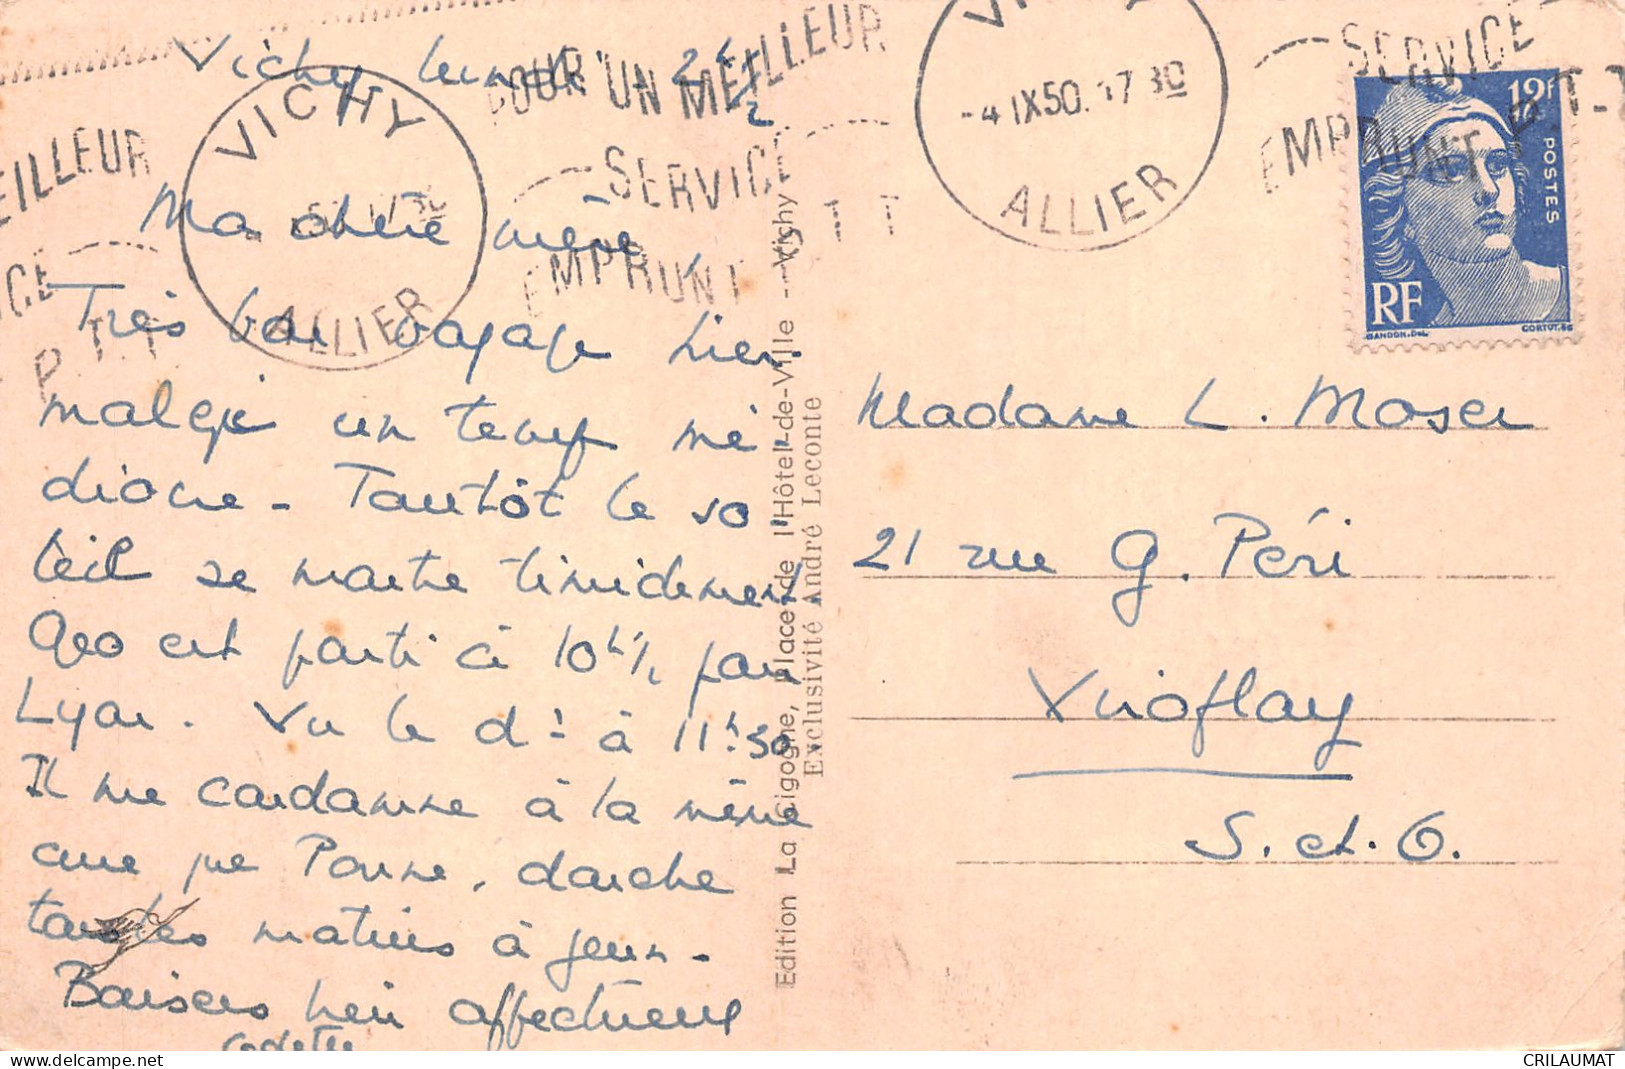 Vichy, lundi 2 h ½
Ma chère mère,
Très bon voyage hier
malgré un temps mé-
diocre - Tantôt le so
leil se montre timidement.
Geo est parti à 10h ½ par
Lyon. Vu le dr à 11h 30
Il me condamne à la même
cure que Pour , douche
toutes matins à jeun -
Baisers bien affectueux
Colette
Madame L. Moser
21 rue G. Péri
Viroflay
S. et. O.
VICHY
ALLIER
POUR UN MEILLEUR
SERVICE P.T.T
EMPRUNT
MEILLEUR
P.T.T
VICHY
-4 IX50. 17 30
ALLIER
SERVICE P.T.T
EMPRUNT
12f
POSTES
RF
GANDON.DEL
CORTOT.SC
Edition La Cigogne, Place de l'Hôtel-de-Ville - Vichy
Exclusivité André Leconte
CRILAUMAT